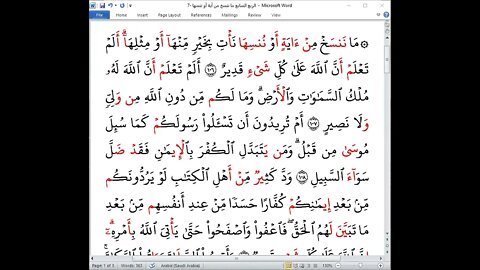 الربع السابع ما ننسخ من آية أو ننسها ٦٠ - Microsoft Word
File Home Insert Page Layout References Mailings Review View
۞ مَا نَنسَخْ مِنْ ءَايَةٍ أَوْ نُنسِهَا نَأْتِ بِخَيْرٍ مِّنْهَآ أَوْ مِثْلِهَآ ۗ أَلَمْ
تَعْلَمْ أَنَّ ٱللَّهَ عَلَىٰ كُلِّ شَىْءٍ قَدِيرٌ ١٠٦ أَلَمْ تَعْلَمْ أَنَّ ٱللَّهَ لَهُۥ
مُلْكُ ٱلسَّمَٰوَٰتِ وَٱلْأَرْضِ ۗ وَمَا لَكُم مِّن دُونِ ٱللَّهِ مِن وَلِىٍّ
وَلَا نَصِيرٍ ١٠٧ أَمْ تُرِيدُونَ أَن تَسْـَٔلُوا۟ رَسُولَكُمْ كَمَا سُئِلَ
مُوسَىٰ مِن قَبْلُ ۗ وَمَن يَتَبَدَّلِ ٱلْكُفْرَ بِٱلْإِيمَٰنِ فَقَدْ ضَلَّ
سَوَآءَ ٱلسَّبِيلِ ١٠٨ وَدَّ كَثِيرٌ مِّنْ أَهْلِ ٱلْكِتَٰبِ لَوْ يَرُدُّونَكُم
مِّنۢ بَعْدِ إِيمَٰنِكُمْ كُفَّارًا حَسَدًا مِّنْ عِندِ أَنفُسِهِم مِّنۢ بَعْدِ
مَا تَبَيَّنَ لَهُمُ ٱلْحَقُّ ۖ فَٱعْفُوا۟ وَٱصْفَحُوا۟ حَتَّىٰ يَأْتِىَ ٱللَّهُ بِأَمْرِهِۦٓ ۗ
Page: 1 of 3 Words: 363 Arabic (Saudi Arabia) 130%